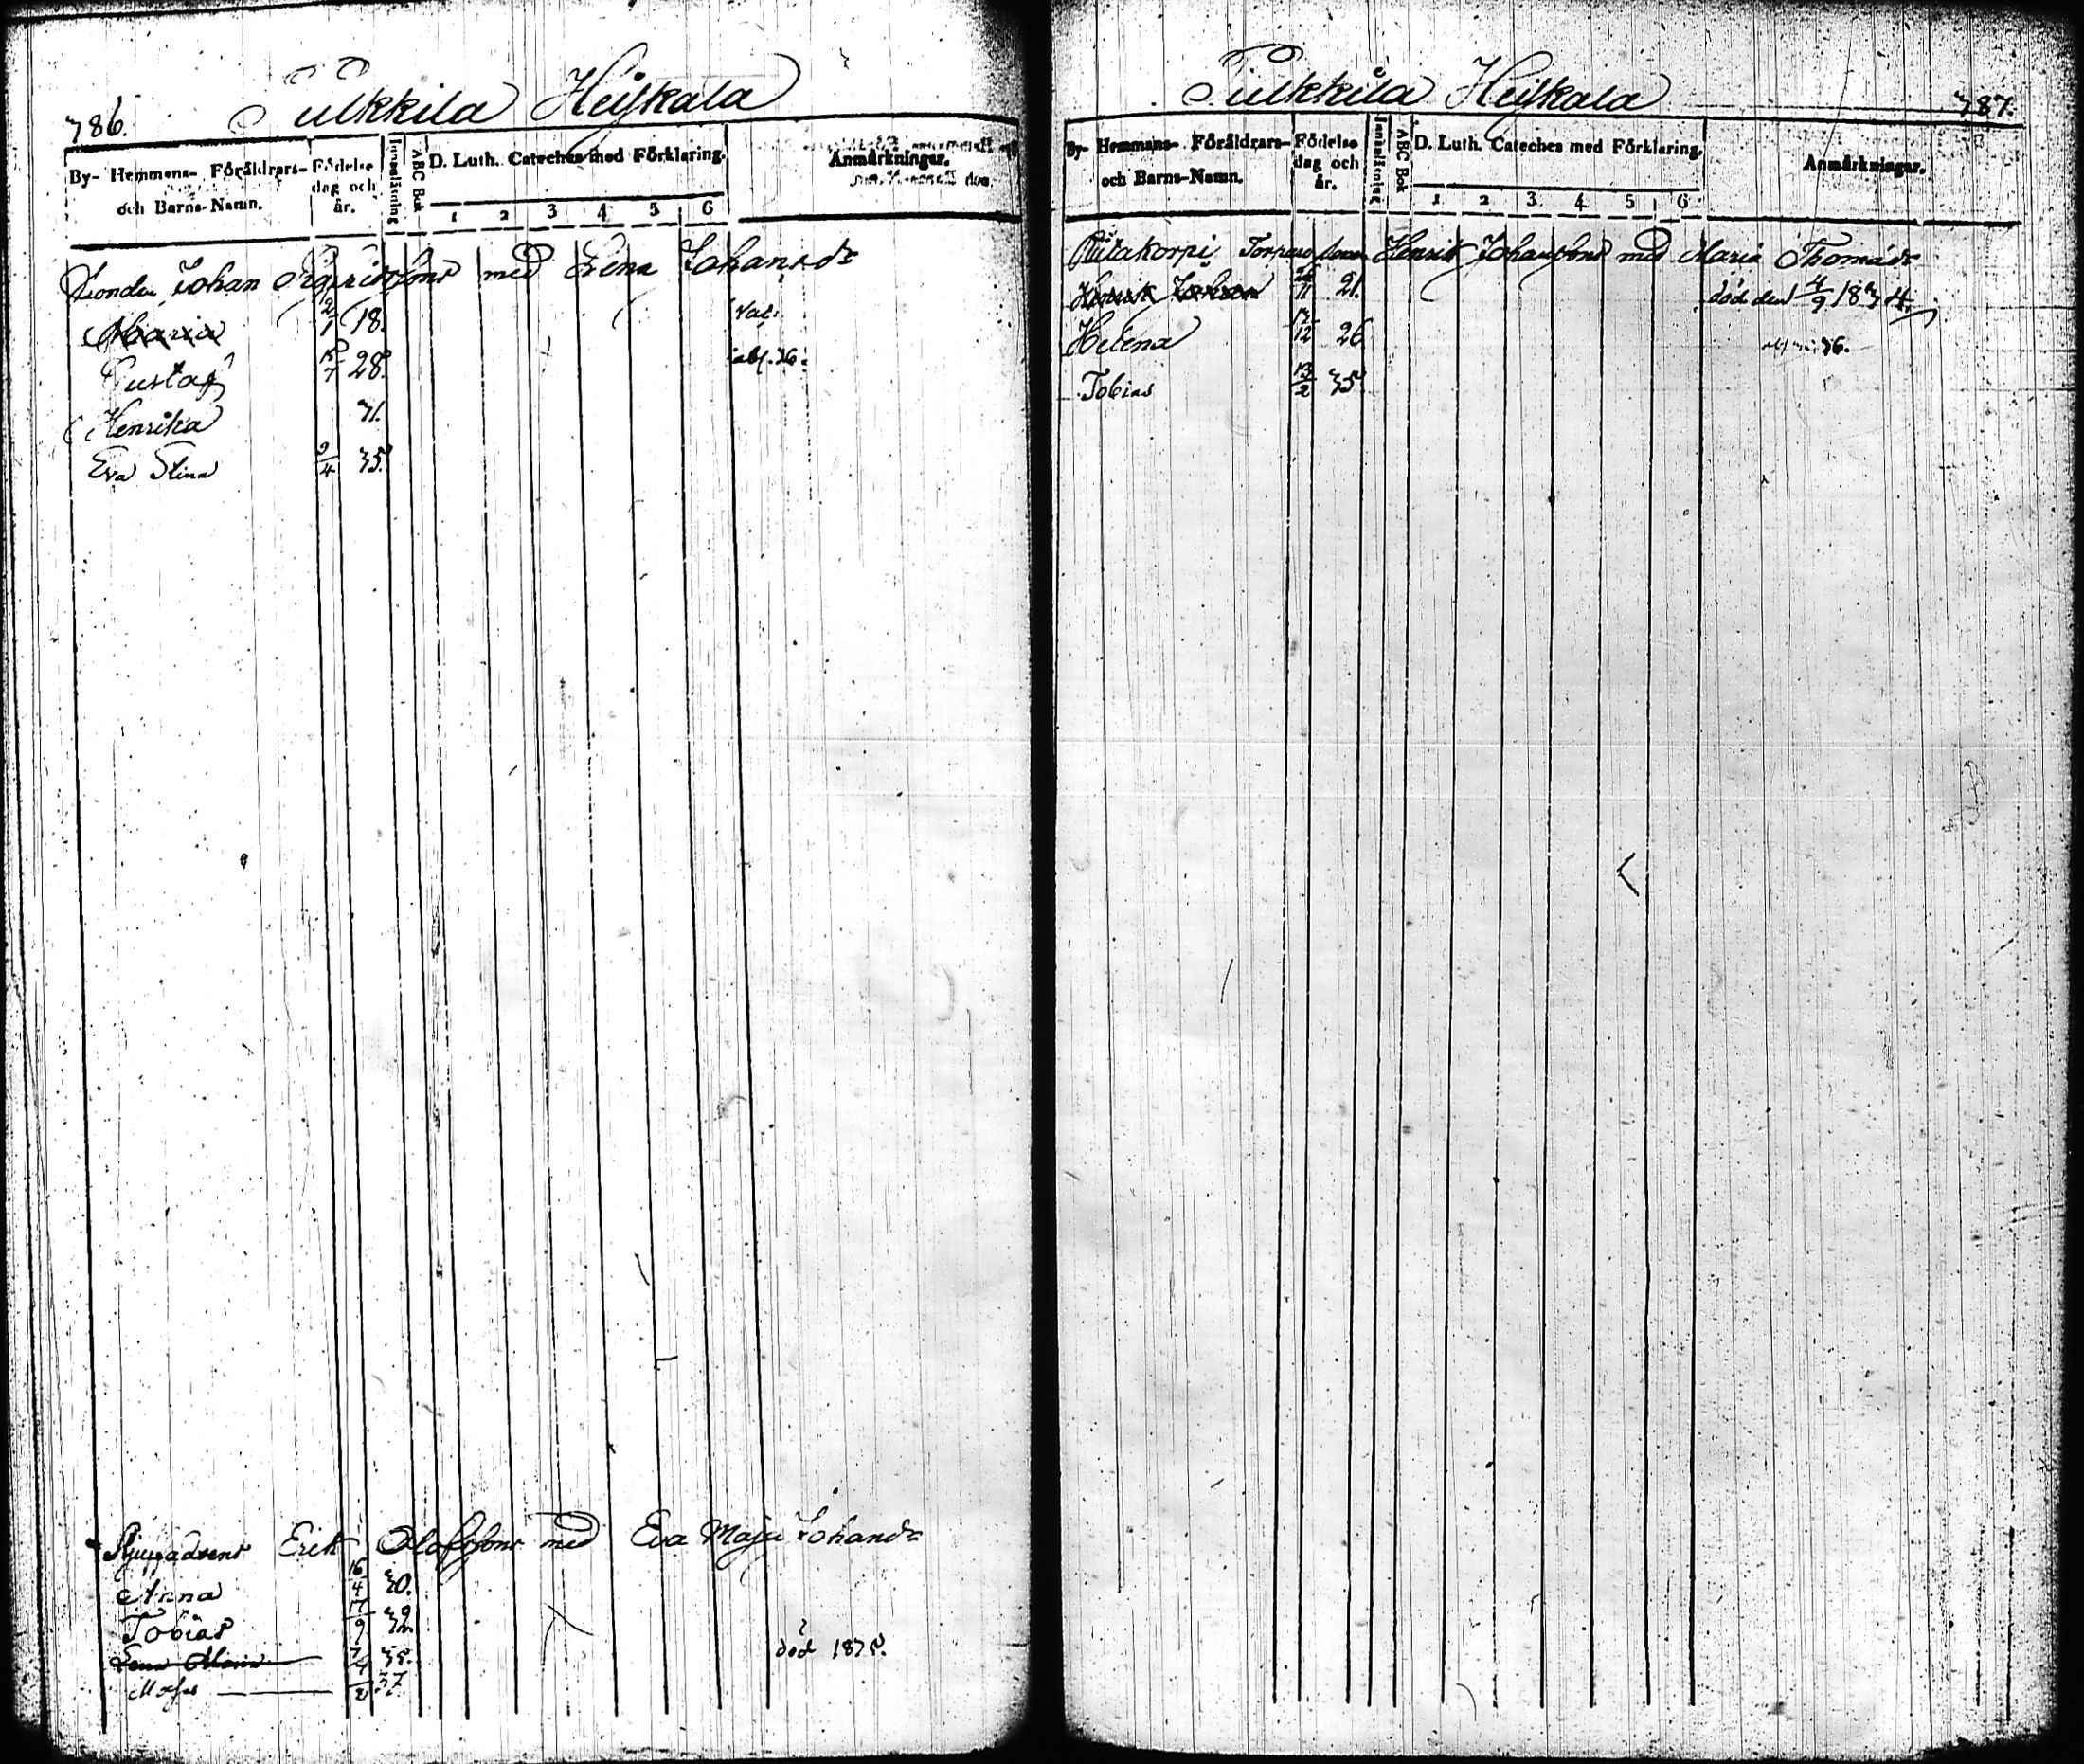 786.
Pulkkila Heiskala
By- Hemmans- Föräldrars-
och Barns-Namn.
Födelse
dag och
år.
Innanläsning
ABC Bok
D. Luth. Cateches med Förklaring.
1 2 3 4 5 6
Anmärkningar.
Bonden Johan Sigfridssons med Lena Johansdr
Maria 2/1 18.
Gustaf 7 28.
Henrika 31.
Eva Stina 9/4 35.
Erik Olofssons med Eva Maja Johansdr
Anna 16/4 30.
Tobias 9 32
Lena Maria 35. död 1835.
Moses 37
Pulkkila Heiskala
787.
By- Hemmans- Föräldrars-
och Barns-Namn.
Födelse
dag och
år.
Innanläsning
ABC Bok
D. Luth. Cateches med Förklaring.
1 2 3 4 5 6
Anmärkningar.
Torpare Henrik Johanssons med Maria Thomasdr
11 21. död den 4/9 1834.
Helena 12 26 36.
Tobias 13/2 35